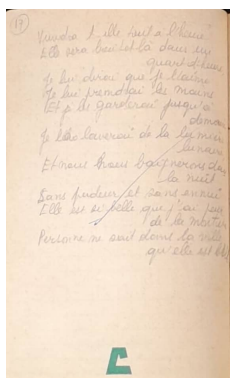 17
Viendra t elle c'est à l'heure
Elle sera bientôt là dans un
quart d'heure
Je lui dirai que je l'aime
Je lui prendrai les mains
Et je la garderai jusqu'à
demain
Je la laverai de la lumière
lunaire
Et nous nous baignerons dans
la nuit
Sans pudeur et sans ennui
Elle est si belle que j'ai peur
de la
Personne ne sait dans la ville
qu'elle est